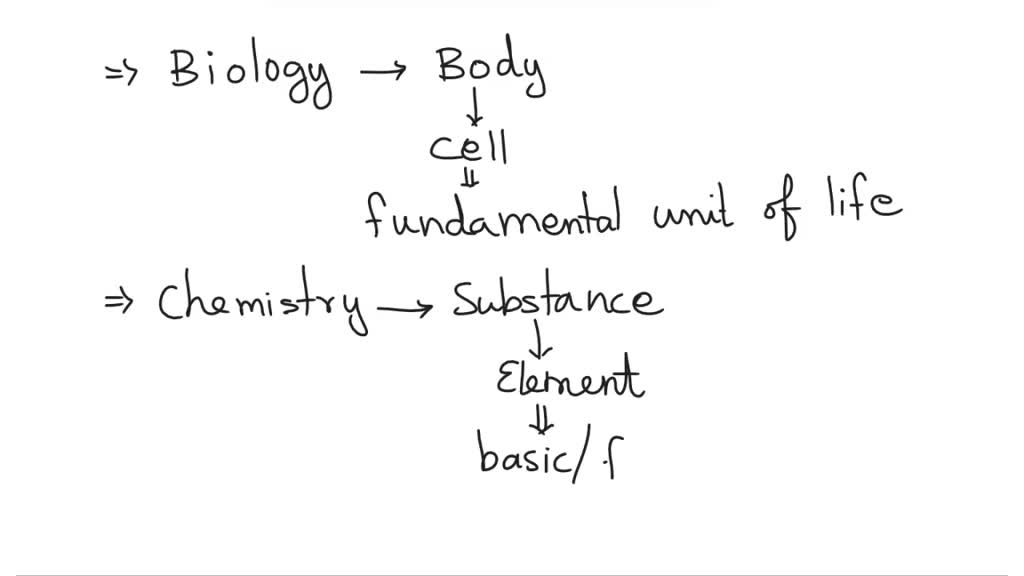 ⇒ Biology → Body
↓
cell
⇓
fundamental unit of life
⇒ Chemistry → Substance
↓
Element
⇓
basic/f